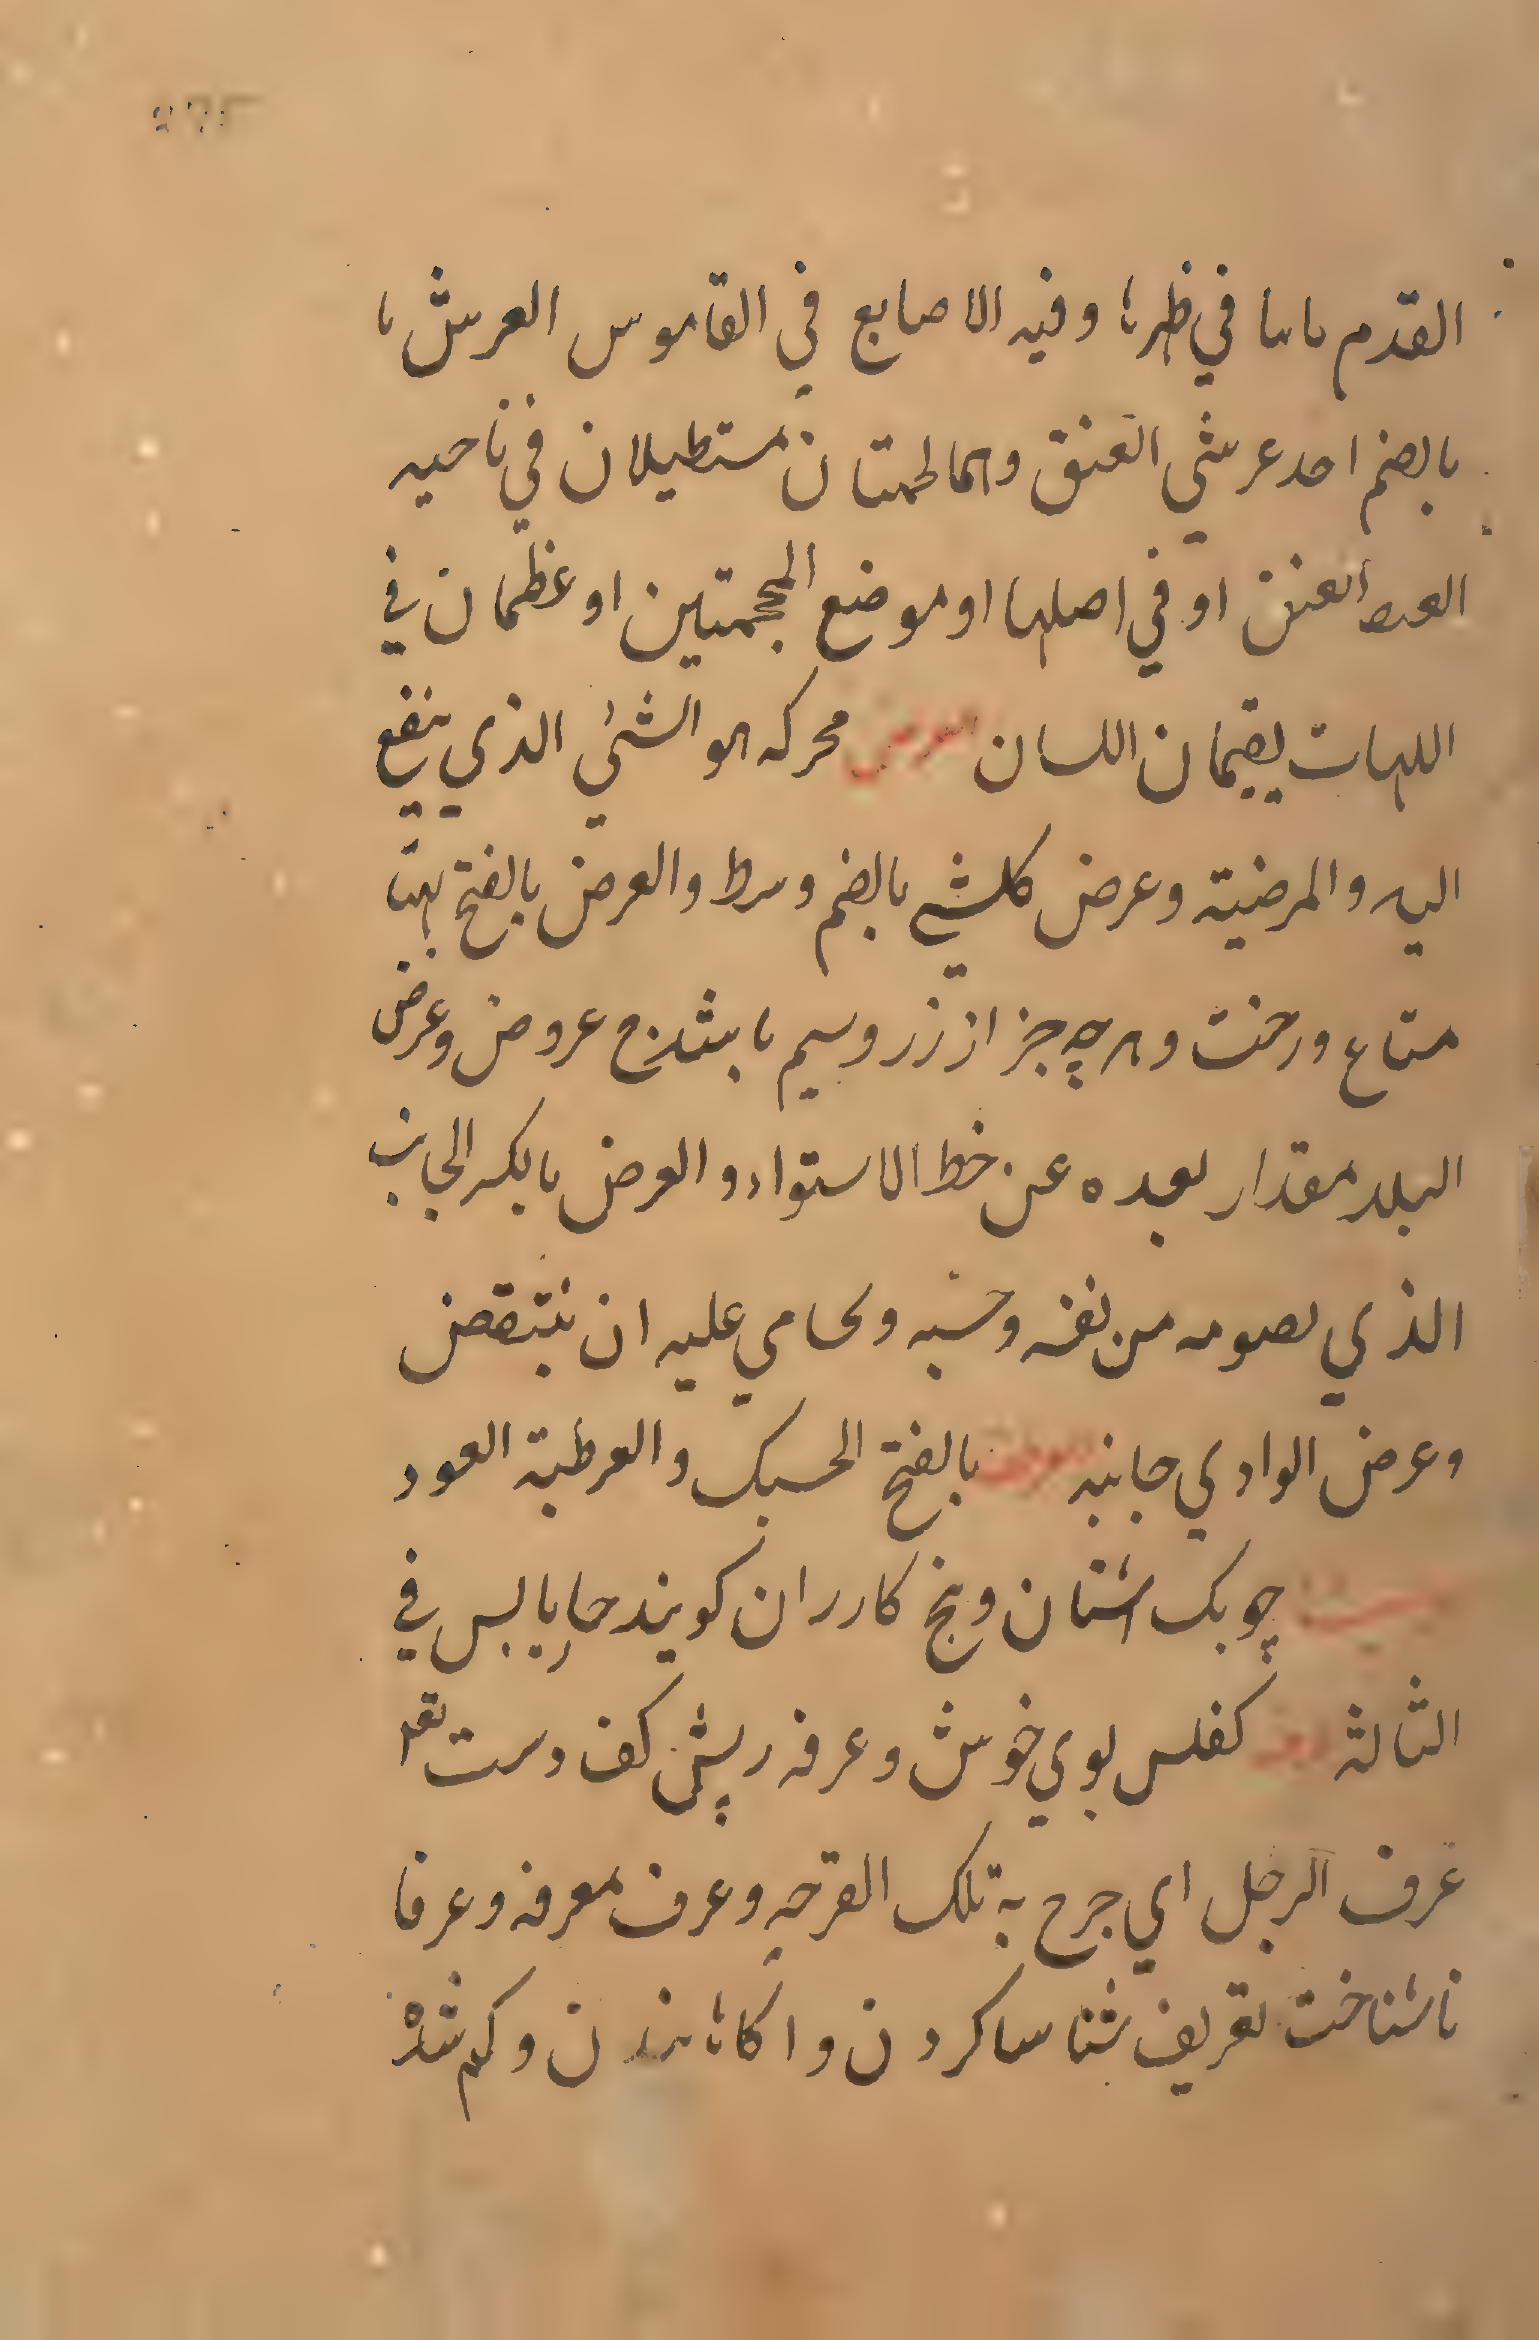 القدم ماسا في ظهرها وفيه الاصابع في القاموس العرش با
بالضم احد عرشي العنق وهما لحمتان مستطيلان في ناحيه
العنق او في اصلها او موضع المحجمتين او عظمان في
اللهات يقيمان اللسان العرض محركه هو الشئي الذي ينفع
اليه والمرضية وعرض كلشي بالضم وسط والعرض بالفتح
متاع ورخت وهر چه جز از زر وسيم باشد ج عروض وعرض
البلد مقدار بعده عن خط الاستواء والعرض بالكسر الجانب
الذي يصونه من نفسه وحسبه ويحامي عليه ان ينتقض
وعرض الوادي جانبه بالفتح الحسبك والعرطبة العود
چوبك اشنان وبنج كازران كويند حار يابس في
الثالثه كفلس بوي خوش وعرفه ريش كف دست يقر
عرف الرجل اي جرح به تلك القرحه وعرف معرفه وعرفا
ناشناخت تعريف شناسا كردن واكاهانيدن وكم شد